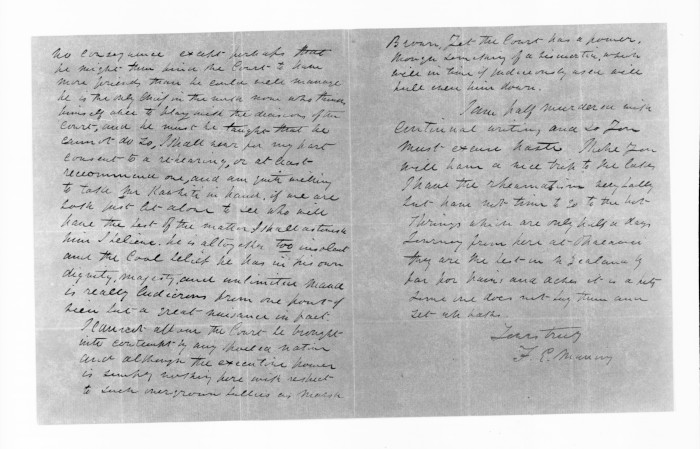 no consequence except perhaps that
he might then find the Court to have
more friends than he could well manage
he is the only Chief in the north now who thinks
himself able to play with the decisions of the
Court, and he must be taught that he
cannot do so, I shall never for my part
consent to a rehearing, or at least
recommend one, and am quite willing
to take Mr Kawhiti in hand, if we are
both just let alone to see who will
have the best of the matter I shall astonish
him I believe. he is altogether too insolent
and the cool belief he has in his own
dignity, majesty, and unlimited mana
is really ludicrous from one point of
view but a great nuisance in fact.
I cannot allow the Court be brought
into contempt by any native
and although the executive power
is simply nothing here with respect
to such overgrown bullies as Marsh
Brown, yet the Court has a power,
though somewhat of a vis inertia, which
well in time if judiciously used will
pull even him down.
I am half murdered with
continual writing and so you
must excuse haste. I hope you
will have a nice trip to the Lakes
I have the rheumatism very badly
but have not time to go to the hot
springs which are only half a days
journey from here at Ohaeawai
they are the best in N Zealand by
far for pains and aches it is a pity
some one does not buy them and
set up baths.
Yours truly
F. E. Maning